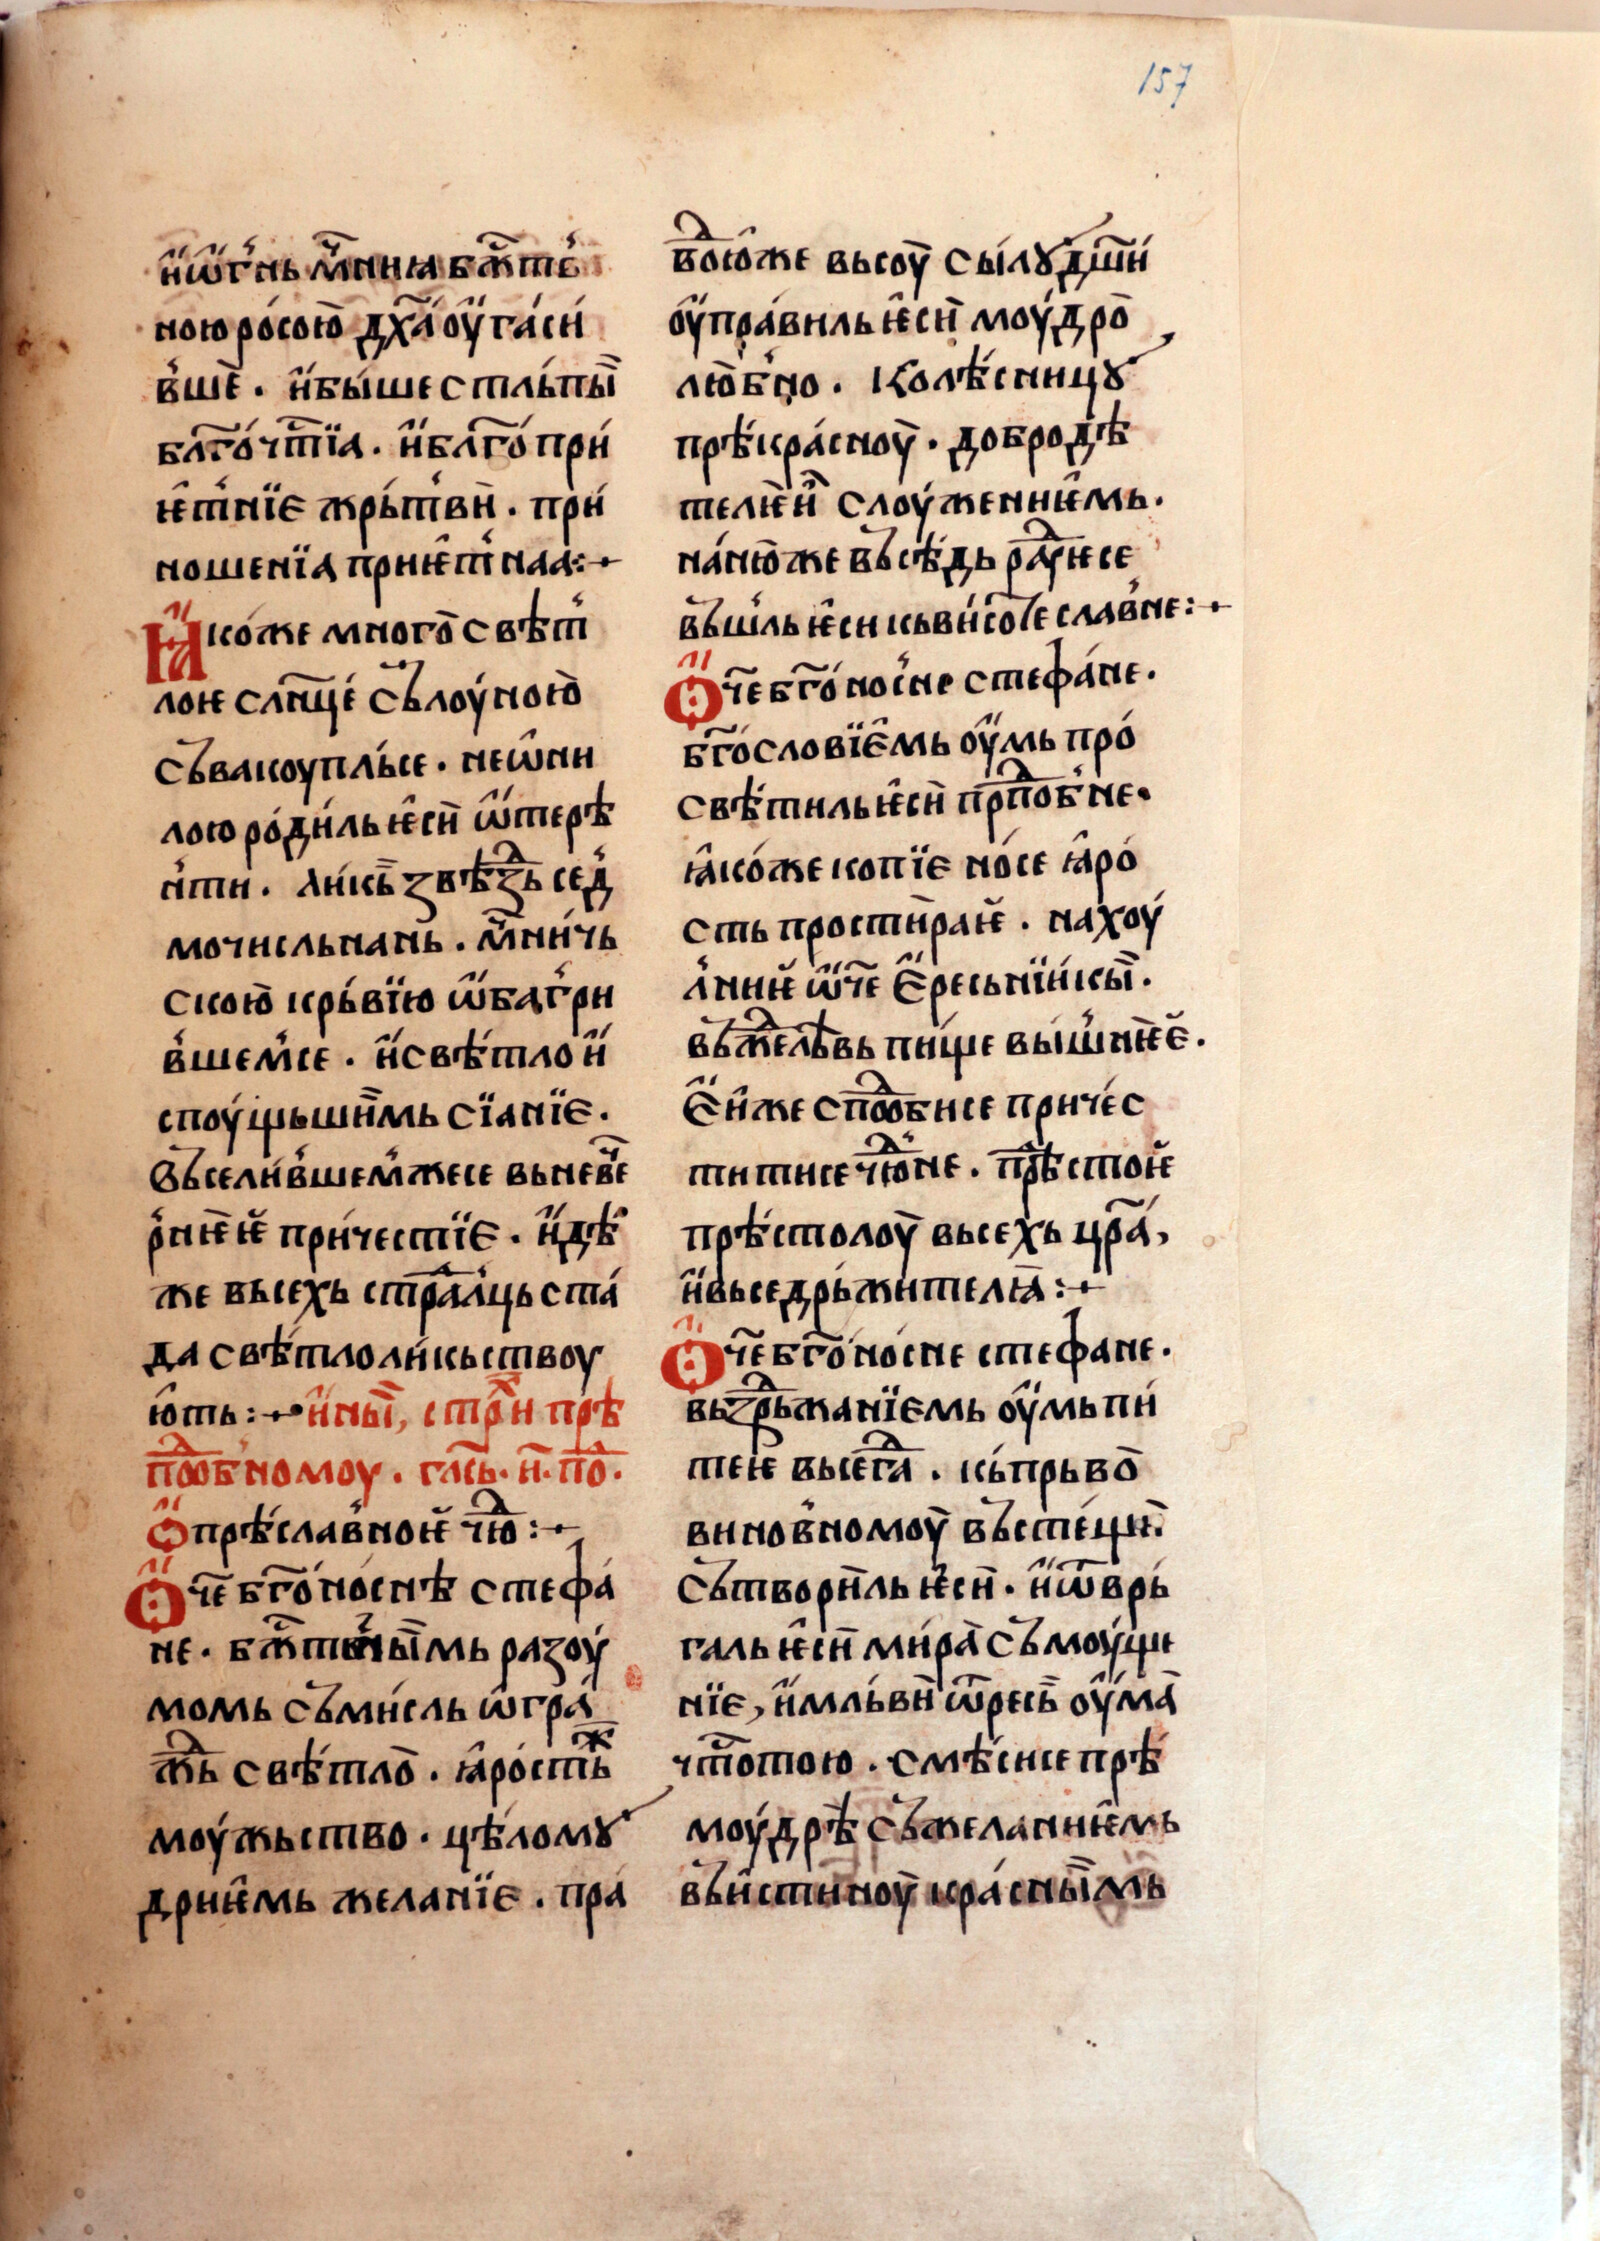 157
и҆ѡ҆́гнь мч҃нїꙗ бжⷭ҇тве́
ною ро́сою дх҃а ѹ҆га́си
в́ше . и҆ бы́ше стль́пы
бл҃го́чⷭ҇тїа . и҆ бл҃го́ при́
ѥ҆т́нїе жрь́твы . при́
ношенїа приѥ҆т́наа :·
Ꙗ҆ко́же много свѣт́
лоѥ сл҃нце́ съ лоу́ною
съвакоупль́се . неѡ҆ни
лою ро́диль ѥ҆си ѿ терѣ
й́ти . ли́кь звѣзⷣь сед́
мочисльнань . мч҃ни́чь
скою крь́вїю ѡ҆баѓри
в́шем́се . и҆ свѣ́тло и҆
споу́щьшимь сїанїе .
Въсели́в́шем́жесе вь неве́ч
р́нѥѥ при́честїе . и҆дѣ́
же вьсехь страдⷣл́ць ста́
да свѣ́тло ли́кьствоу
ю҆ть :· и҆ны, стрⷯи прѣ
поⷣб́номоу . гла́сь . и҃ . поⷣ .
Ѽ прѣ́слав́ноѥ чюⷣ :·
Ѽч҃е бг҃о́но́снѣ стефа́
не . бжⷭ҇твь́нымь разоу́
момь съми́сль ѡ҆гра́
жⷣь свѣ́тло . ꙗ҆ро́стьⷤ
моу́жьство . цѣ́ломꙋ
дриѥ҆мь желанїе . пра́
вⷣою́же вьсоу сы́лꙋ дш҃и́
ѹ҆пра́виль ѥ҆си моу́дро
лю́б́но . Колѣ́сницꙋ
прѣ́кра́сноу . добродѣ́
телѥи҆ слоу́жениѥ҆мь .
на́нюже въсѣ́дь раⷣу́исе
въш́ль ѥ҆си кь ви́сотⷭе слав́не :·
Ѽч҃е бг҃о́нос́не стефа́не .
бг҃о́словїе҆мь ѹ҆мь про́
свѣ́тиль ѥ҆си прⷣпоб́не .
ꙗ҆ко́же копїе но́се ꙗ҆ро́
сть простираѥ . на хоу́
л́ниѥ ѡ҆ч҃е е҆ресьнїи́кы .
въжⷣелѣвь пи́ще вы́ш́нѥе .
Е҆и҆же споⷣби се приче́с
титисе чюⷣне . прⷣѣстоѥ
прѣ́столоу вьсехь цр҃а́,
и҆ вьседрь́жителꙗ :·
Ѽч҃е бг҃о́но́сне стефане .
вьзⷣрьжанїемь ѹ҆мь пи́
теѥ вьсегⷣа . кь прьво
винов́номоу въсте́щи
сътвориль ѥ҆си . и҆ ѿврь́
галь ѥ҆си ми́ра съмоу́ще
нїе, и҆ мль́ви ѿресь ѹ҆ма
чⷭ҇тотою . смѣ́сисе прѣ́
моу́дрѣ съ желанниѥ҆мь
въи҆сти́ноу кра́снымь